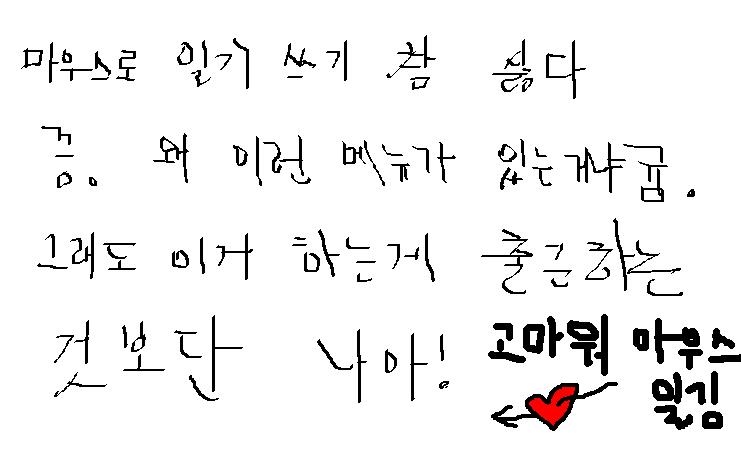 마우스로 일기 쓰기 참 싫다
끔. 왜 이런 메뉴가 있는거냐굼.
그래도 이거 하는게 출근하는
것보단 나아! 고마워 마우스
일김